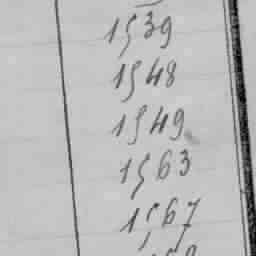 1539
1548
1549
1563
1567